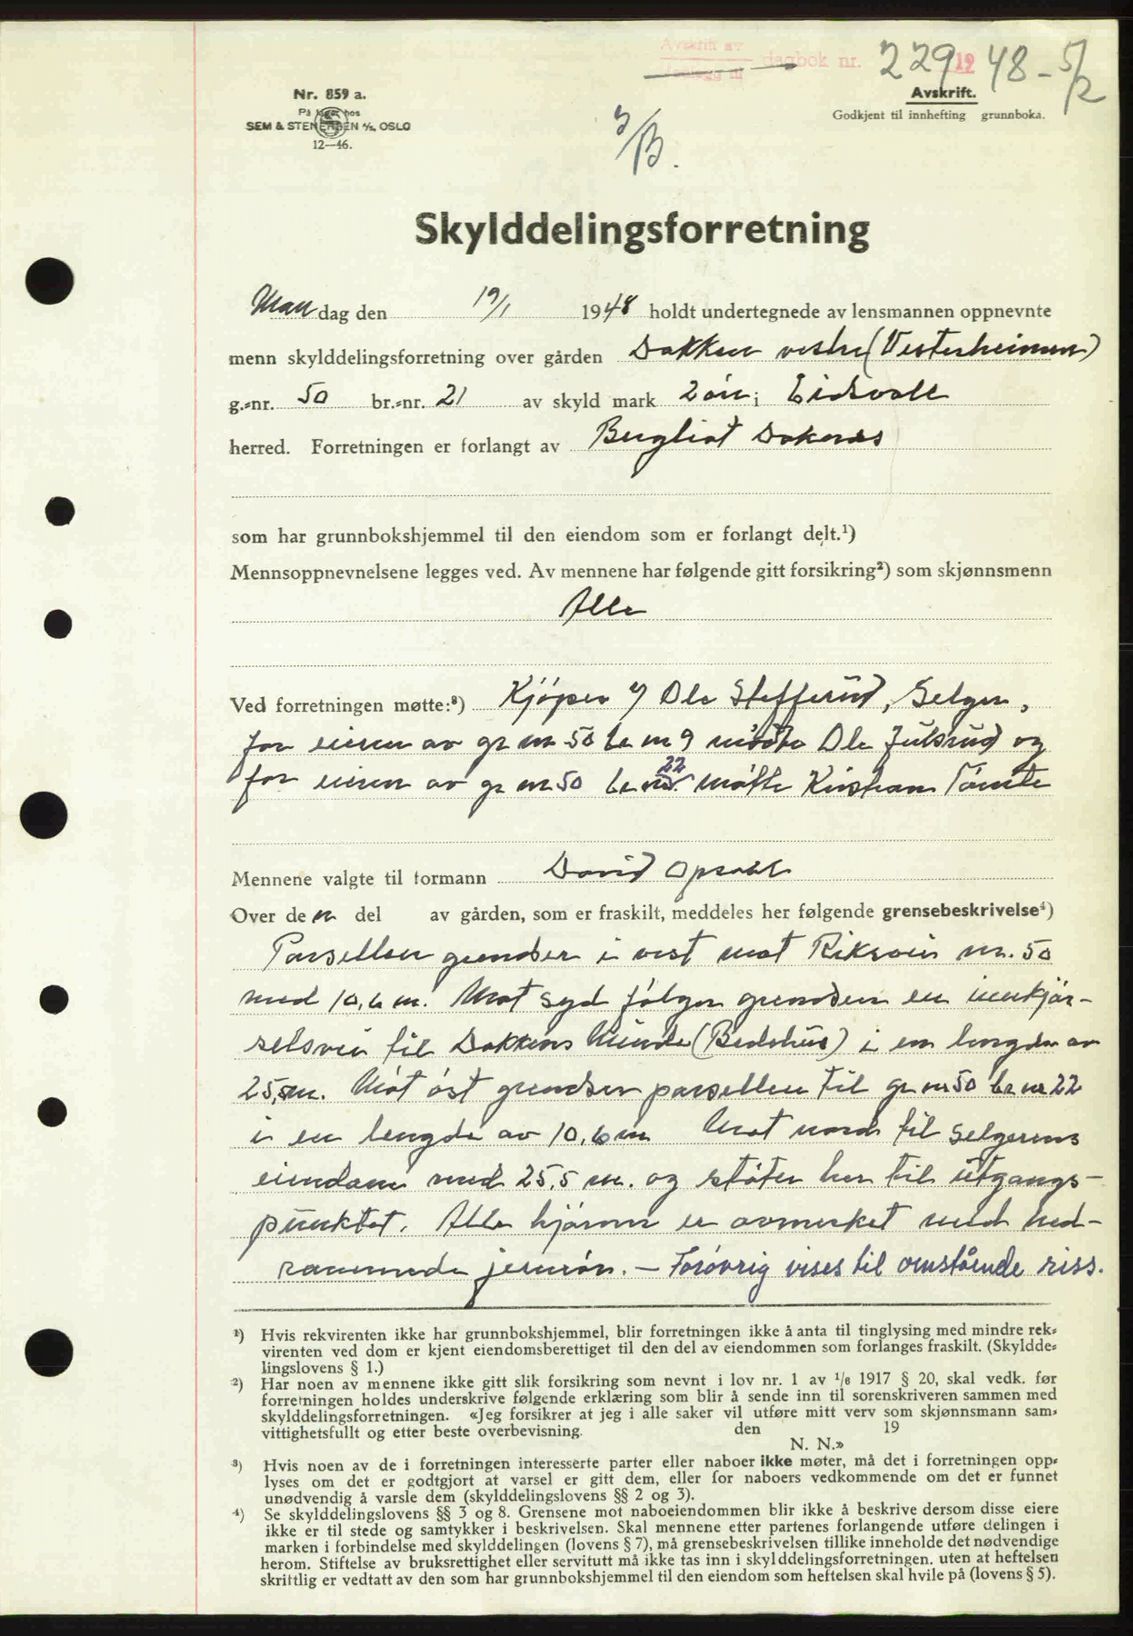 Avskrift av
dagbok nr. 229 1948 - 5/2
Nr. 859 a.
På lager hos
SEM & STENERSEN A/S, OSLO
12—46.
Avskrift.
Godkjent til innhefting grunnboka.
B.
Skylddelingsforretning
Man dag den 19/1 1948 holdt undertegnede av lensmannen oppnevnte
menn skylddelingsforretning over gården Dokken vestre (Vesterheimen)
g.=nr. 50 br.=nr. 21 av skyld mark 2 øre i Eidsvoll
herred. Forretningen er forlangt av Bergliot
som har grunnbokshjemmel til den eiendom som er forlangt delt.¹)
Mennsoppnevnelsene legges ved. Av mennene har følgende gitt forsikring²) som skjønnsmenn
Alle
Ved forretningen møtte:³) Kjöper Ole Stefferud, Selger,
for eieren av gr nr 50 br nr 9 mödte Ole Julsrud og
for eieren av gr nr 50 br nr. 22 mötte Kristian Tömte
Mennene valgte til formann David Opsahl
Over den del av gården, som er fraskilt, meddeles her følgende grensebeskrivelse⁴)
Parsellen grendser i vest mot Riksvei nr. 50
med 10,6 m. Mot syd fölger grendsen en innkjör-
selsvei til Dokkens Minde (Bedehus) i en lengde av
25,5m. Mot öst grendser parsellen til gr nr 50 br nr 22
i en lengde av 10,6 m Mot nord til selgerens
eiendom med 25,5 m. og stöter her til utgangs-
punktet. Alle hjörner er avmerket med ned-
rammede jernrör. — Forøvrig vises til omstående riss.
¹) Hvis rekvirenten ikke har grunnbokshjemmel, blir forretningen ikke å anta til tinglysing med mindre rek=
virenten ved dom er kjent eiendomsberettiget til den del av eiendommen som forlanges fraskilt. (Skyldde=
lingslovens § 1.)
²) Har noen av mennene ikke gitt slik forsikring som nevnt i lov nr. 1 av 1/6 1917 § 20, skal vedk. før
forretningen holdes underskrive følgende erklæring som blir å sende inn til sorenskriveren sammen med
skylddelingsforretningen. «Jeg forsikrer at jeg i alle saker vil utføre mitt verv som skjønnsmann sam=
vittighetsfullt og etter beste overbevisning. den 19
N. N.»
³) Hvis noen av de i forretningen interesserte parter eller naboer ikke møter, må det i forretningen opp=
lyses om det er godtgjort at varsel er gitt dem, eller for naboers vedkommende om det er funnet
unødvendig å varsle dem (skylddelingslovens §§ 2 og 3).
⁴) Se skylddelingslovens §§ 3 og 8. Grensene mot naboeiendommen blir ikke å beskrive dersom disse eiere
ikke er til stede og samtykker i beskrivelsen. Skal mennene etter partenes forlangende utføre delingen i
marken i forbindelse med skylddelingen (lovens § 7), må grensebeskrivelsen tillike inneholde det nødvendige
herom. Stiftelse av bruksrettighet eller servitutt må ikke tas inn i skylddelingsforretningen. uten at heftelsen
skriftlig er vedtatt av den som har grunnbokshjemmel til den eiendom som heftelsen skal hvile på (lovens § 5).